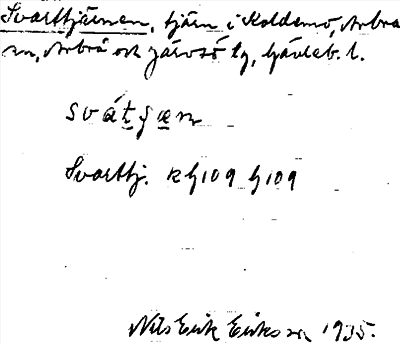 Svarttjärnen, tjärn i Koldemo, Arbrå
sn, Arbrå och Järvsö tg, Gävleb. l.
svátjæn
Svarttj. k G109 G109
Nils Erik Eriksson 1935.